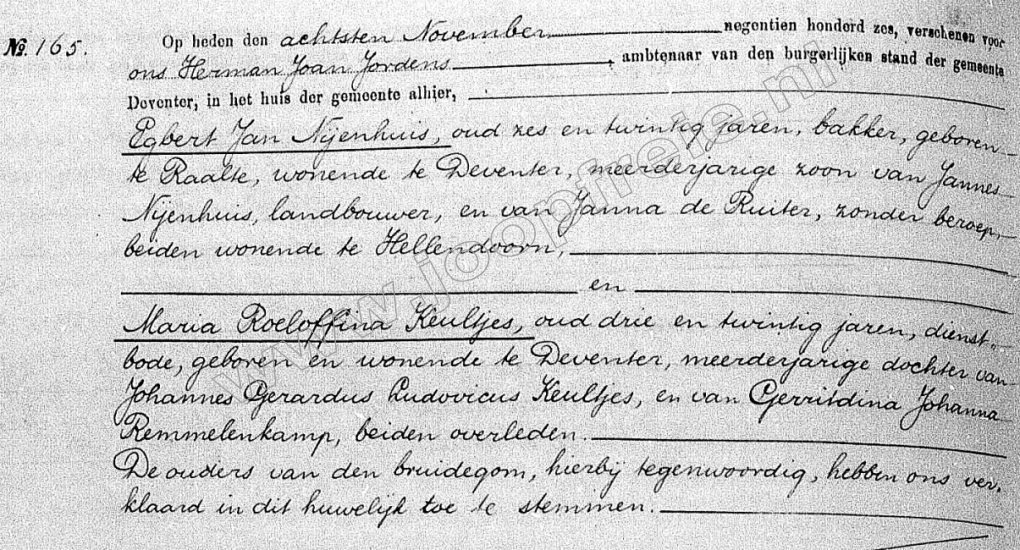 No. 165. Op heden den achtsten November negentien honderd zes, verschenen voor
ons Herman Joan Jordens, ambtenaar van den burgerlijken stand der gemeente
Deventer, in het huis der gemeente alhier,
Egbert Jan Nijenhuis, oud zes en twintig jaren, bakker, geboren
te Raalte, wonende te Deventer, meerderjarige zoon van Jannes
Nijenhuis, landbouwer, en van Janna de Ruiter, zonder beroep,
beiden wonende te Hellendoorn,
en
Maria Roeloffina Keultjes, oud drie en twintig jaren, dienst-
bode, geboren en wonende te Deventer, meerderjarige dochter van
Johannes Gerardus Ludovicus Keultjes, en van Gerritdina Johanna
Remmelenkamp, beiden overleden.
De ouders van den bruidegom, hierbij tegenwoordig, hebben ons ver-
klaard in dit huwelijk toe te stemmen.
www.joopfrele.nl